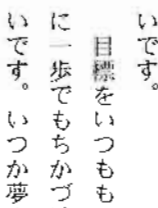 いです。
目標をいつもも
に一歩でもちかづ
いです。いつか夢